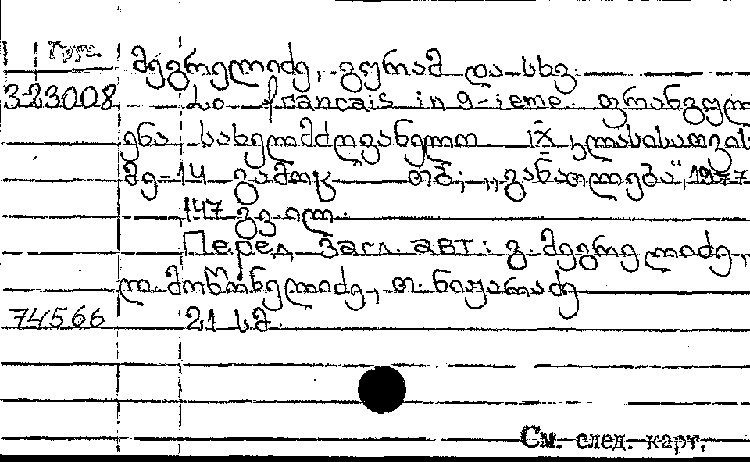 Груз.
მეგრელიძე, გურამ და სხვ.
323008 Le français in 9-ieme. ფრანგულ
ენა სახელმძღვანელო IX კლასისათვის
მე-14 გამოც თბ; „განათლება“, 1977
147 გვ ილ.
Перед загл. авт: გ. მეგრელიძე,
ლ. მოწონელიძე, თ. ნიჟარაძე
74566 21 სმ.
См. след. карт.